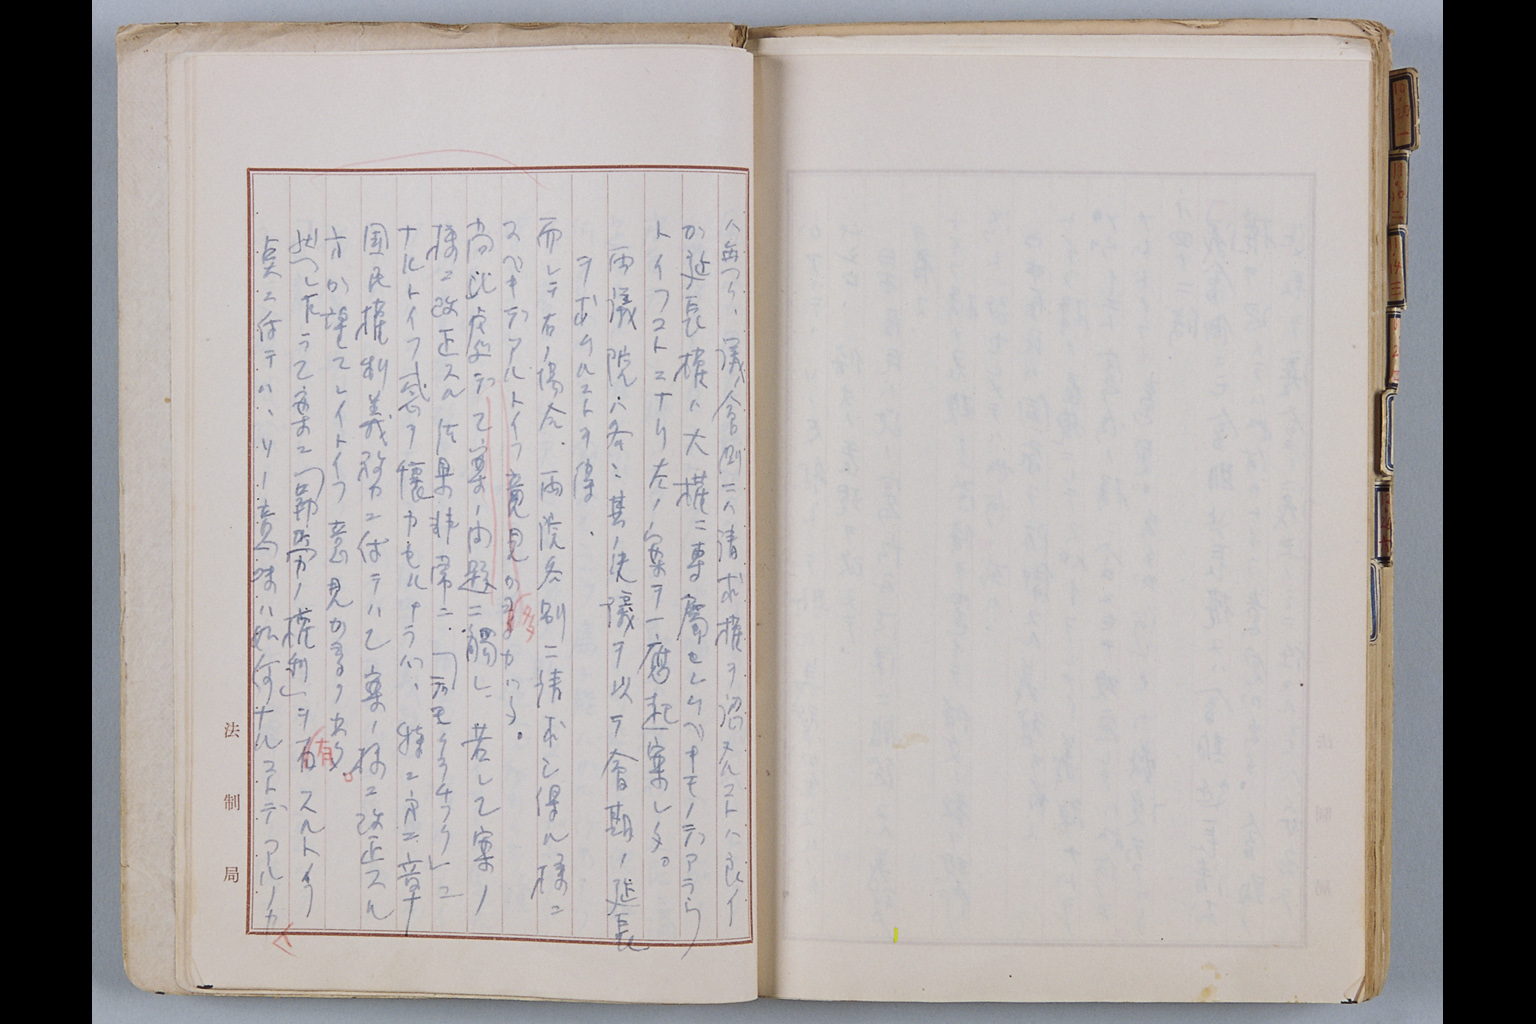 ハ毎ツイ、議會側ニハ請求權ヲ認メルコトハ良イ
が延長權ハ大權ニ專屬セシムベキモノデアラウ
トイフコトニナリ左ノ案ヲ一應起案シタ。
両議院ハ各〻其ノ決議ヲ以テ會期ノ延長
ヲ求ムルコトヲ得、
而シテ右ノ場合、両院各別ニ請求シ得ル樣ニ
スベキデアルトイフ意見が多カッタ。
尚此處デ乙案ノ問題ニ觸レ、若シ乙案ノ
樣ニ改正スル結果非常ニ「デモクラチック」ニ
ナルトイフ感ヲ懷カセルナラバ、特ニ第二章
國民權利義務ニ付テハ乙案ノ樣ニ改正スル
方が望マシイトイフ意見が多ク出タ
然シ乍ラ乙案ニ「勤勞ノ權利」ヲ有スルトイフ
點ニ付テハ、ソノ意味ハ如何ナルコトデアルノカ
有
多
法制局